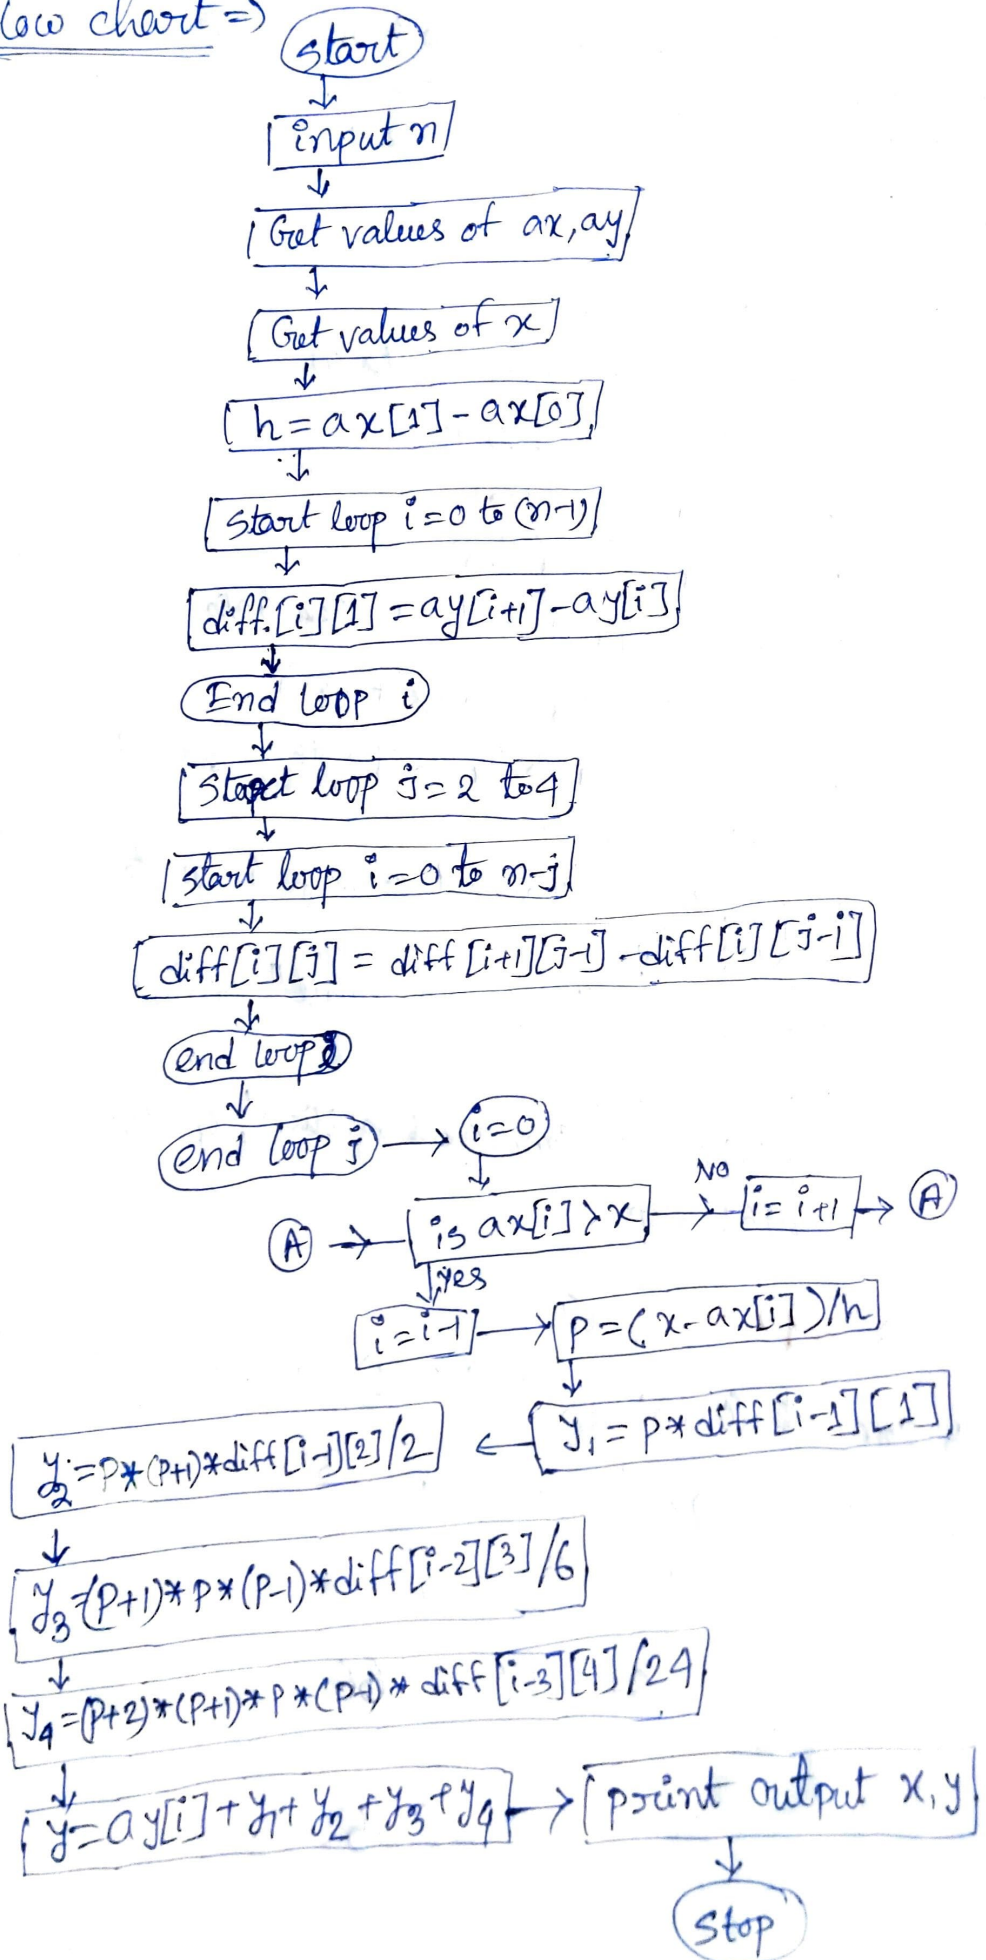 low chart =>
start
input n
Get values of ax, ay
Get values of x
h = ax[1] - ax[0]
start loop i=0 to (n-1)
diff.[i][1] = ay[i+1] - ay[i]
End loop i
Start loop j=2 to 4
start loop i=0 to n-j
diff[i][j] = diff[i+1][j-1] - diff[i][j-i]
end loop i
end loop j
i=0
A
is ax[i] > x
NO
i = i+1
A
yes
i = i-1
p = (x - ax[i])/h
y₁ = p * diff[i-1][1]
y₂ = P*(P+1)*diff[i-1][2]/2
y₃ = (P+1)*P*(P-1)*diff[i-2][3]/6
y₄ = (P+2)*(P+1)*P*(P-1)*diff[i-3][4]/24
y = ay[i] + y₁ + y₂ + y₃ + y₄
print output x, y
stop